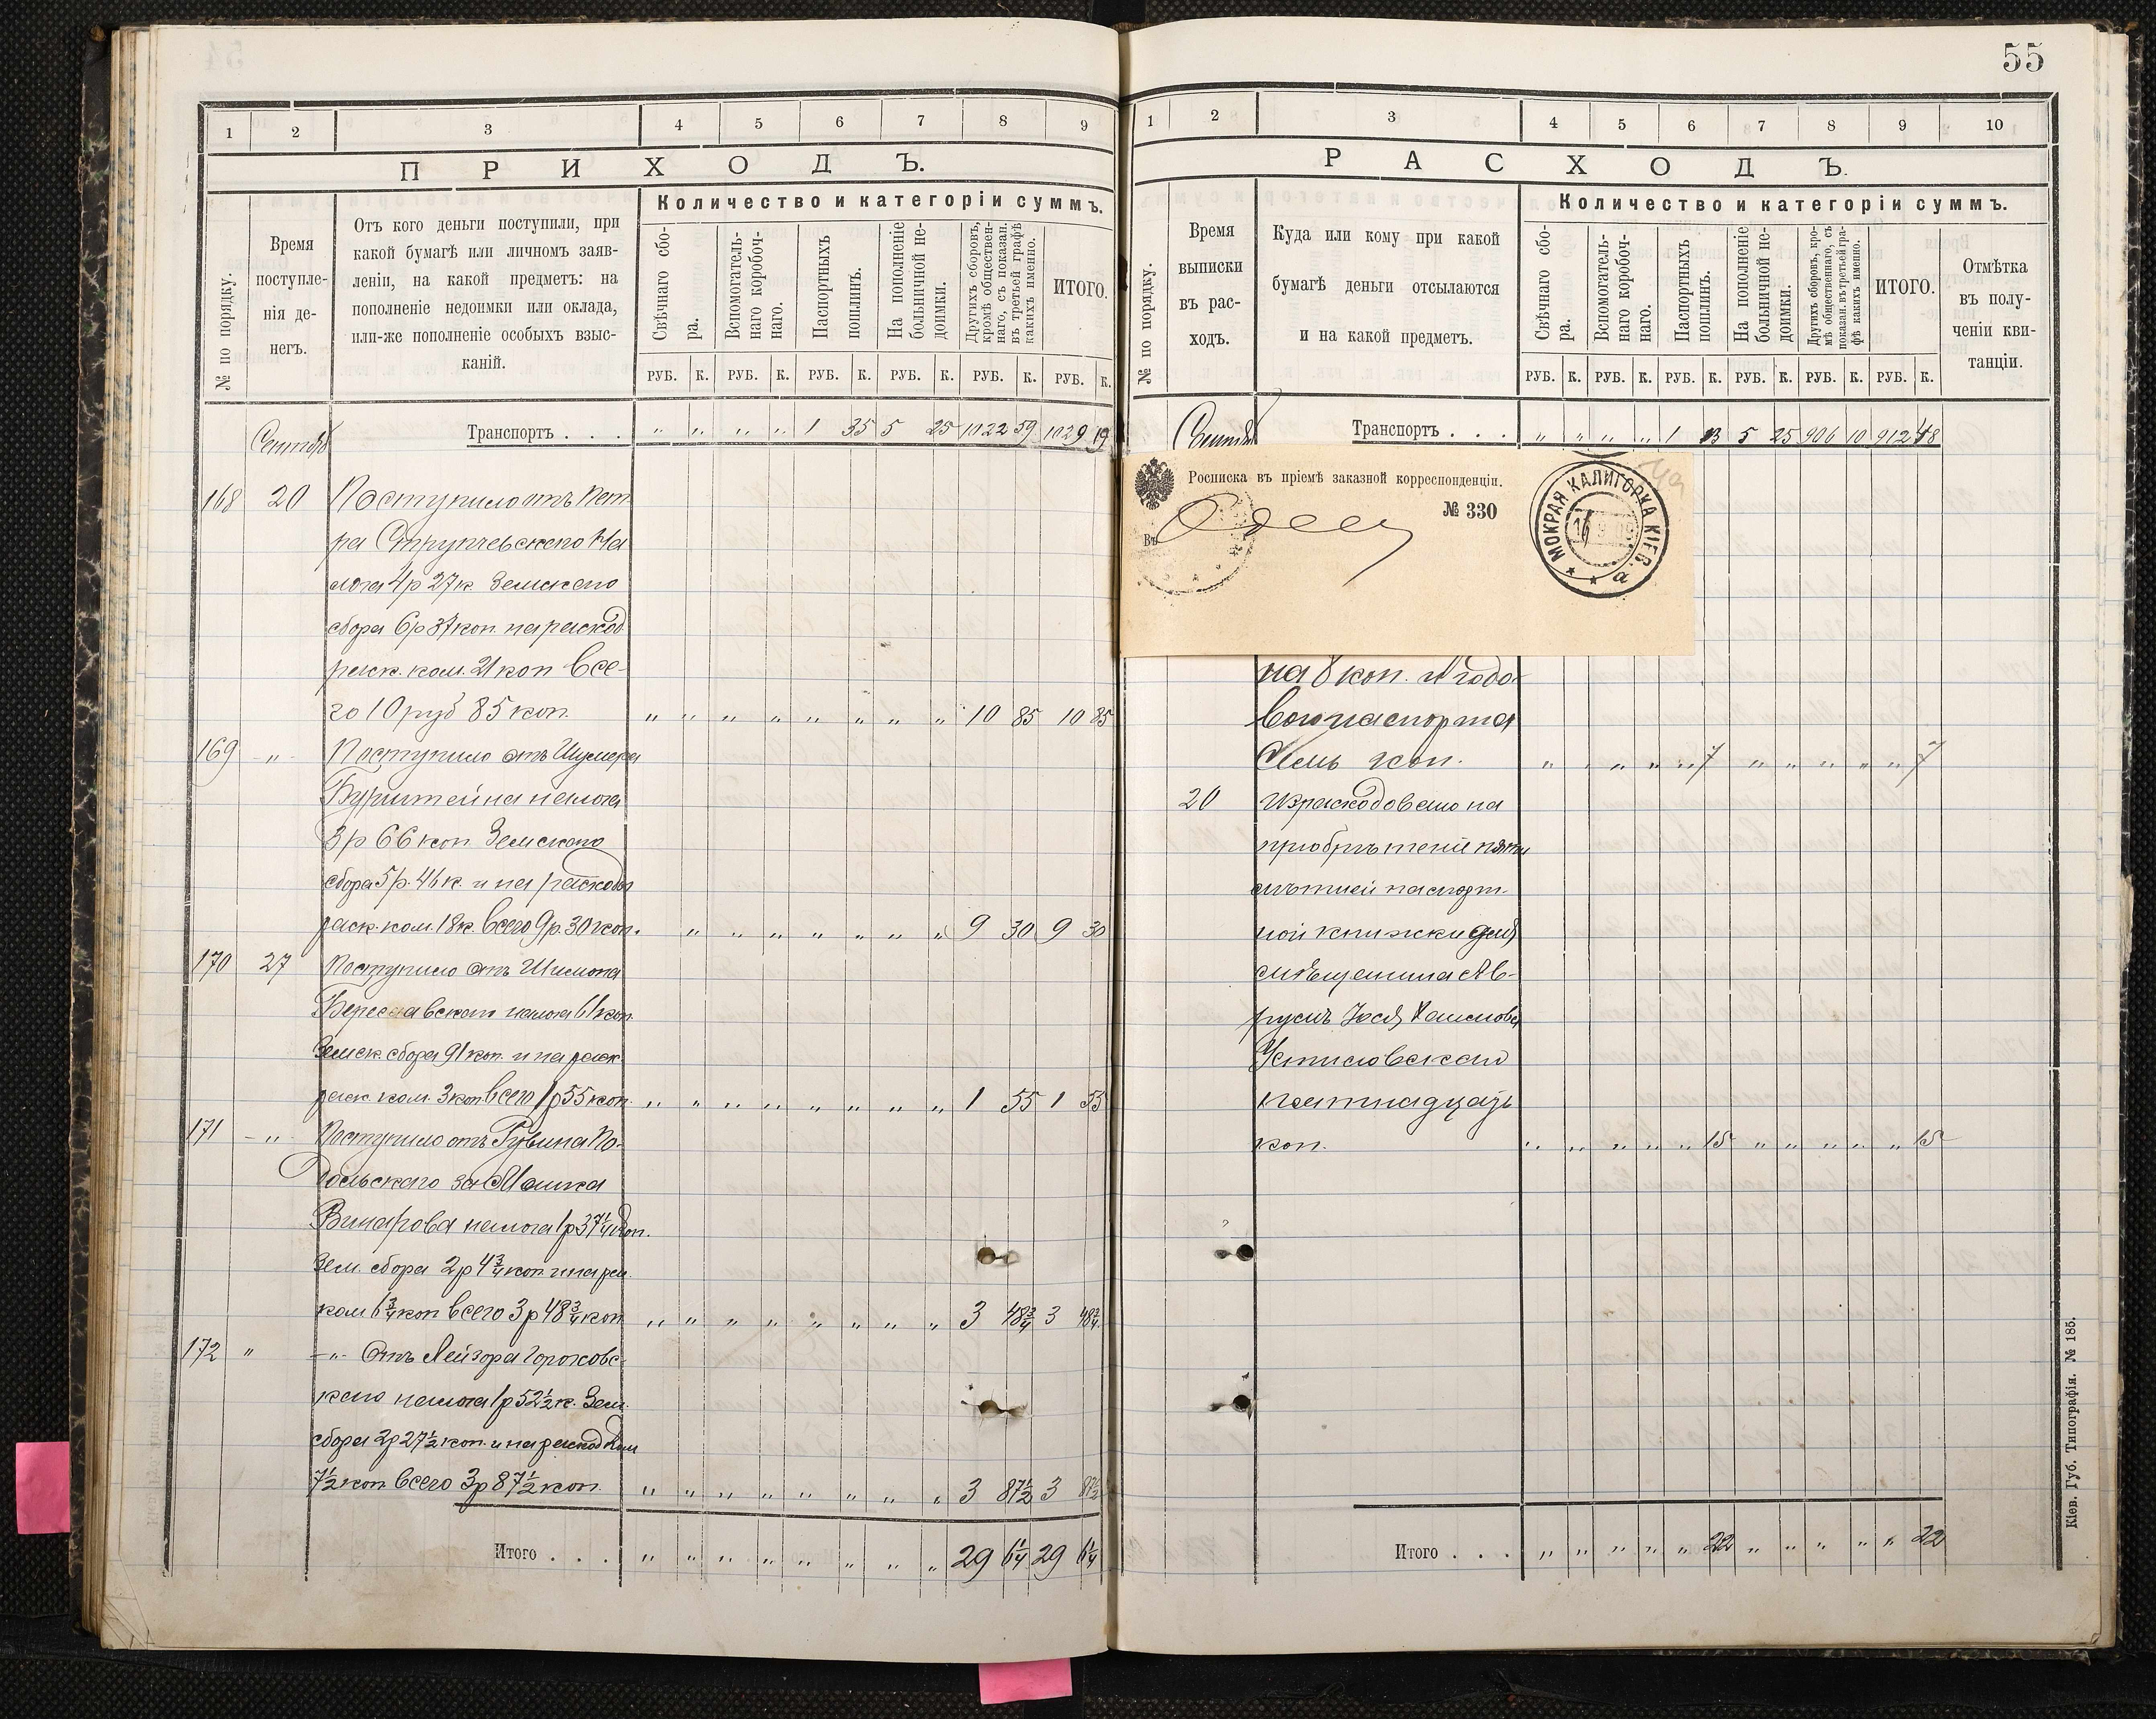 55
1 2 3 4 5 6 7 8 9
ПРИХОДЪ.
№ по порядку.
Время
поступле-
нія де-
негъ.
Отъ кого деньги поступили, при
какой бумагѣ или личномъ заяв-
леніи, на какой предметъ: на
пополненіе недоимки или оклада,
или-же пополненіе особыхъ взыс-
каній.
Количество и категоріи суммъ.
Свѣчнаго сбо-
ра.
Вспомогатель-
наго коробоч-
наго.
Паспортныхъ
пошлинъ.
На пополненіе
больничной не-
доимки.
Другихъ сборовъ,
кромѣ обществен-
наго, съ показан.
въ третьей графѣ
какихъ именно.
ИТОГО.
РУБ. К. РУБ. К. РУБ. К. РУБ. К. РУБ. К. РУБ. К.
Сентяб
Транспортъ . . . " " " " 1 35 5 25 1022 59 1029 19
168 20 Поступило отъ Пет
ра Струпчевскаго На
лога 4р 27к Земскаго
сбора 6р 37коп на расход
раск. ком. 21 коп Все-
го 10 руб 85 коп. " " " " " " " " 10 85 10 85
169 -"- Поступило отъ Шумера
Бурштейна налога
3р 66 коп Земскаго
сбора 5р. 46к. и на расходы
раск. ком. 18к. Всего 9р. 30 коп. " " " " " " " 9 30 9 30
170 27 Поступило отъ Шимона
Береславскаго налога 61 коп.
Земск. сбора 91 коп. и на раск
раск. ком. 3 коп Всего 1р 55 коп. " " " " " " " " 1 55 1 55
171 -"- Поступило отъ Рувина По-
дольскаго за Мошка
Винарова налога 1р 37¼ коп.
Зем. сбора 2р 4¾ коп. и на ра
ком 6¾ коп Всего 3р 48¾ коп " " " " " " " " 3 48¾ 3 48¾
172 " -"- Отъ Лейзора Гороховс-
каго налога 1р 52½ к. Зем.
сбора 2р 27½ коп. и на расход ком
7½ коп Всего 3р 87½ коп. " " " " " " " " 3 87½ 3 87½
Итого . . . " " " " " " " " 29 6¼ 29 6¼
1 2 3 4 5 6 7 8 9 10
РАСХОДЪ.
№ по порядку.
Время
выписки
въ рас-
ходъ.
Куда или кому при какой
бумагѣ деньги отсылаются
и на какой предметъ.
Количество и категоріи суммъ.
Свѣчнаго сбо-
ра.
Вспомогатель-
наго коробоч-
наго.
Паспортныхъ
пошлинъ.
На пополненіе
больничной не-
доимки.
Другихъ сборовъ, кро-
мѣ общественнаго, съ
показан. въ третьей гра-
фѣ какихъ именно.
ИТОГО.
Отмѣтка
въ полу-
ченіи кви-
танціи.
РУБ. К. РУБ. К. РУБ. К. РУБ. К. РУБ. К. РУБ. К.
Сентяб
Транспортъ . . . " " " " 1 13 5 25 906 10 912 48
Росписка въ пріемѣ заказной корреспонденціи.
№ 330
Въ Одессу
МОКРАЯ КАЛИГОРКА КІЕВ.
а
на 8 коп. и годо-
вого паспорта
Семь коп. " " " " " 7 " " " " " 7
20 Израсходовано на
пріобрѣтеніе пяти
лѣтней паспорт-
ной книжки для
мѣщанина Ав-
румъ Іося Хаимова
Устиновскаго
пятнадцать
коп. " " " " " 15 " " " " " 15
Итого . . . " " " " " 22 " " " " " 22
Кіев. Губ. Типографія. № 185.